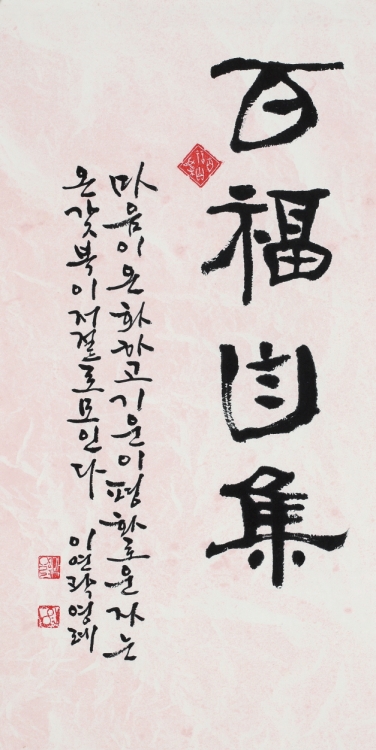 百福自集
마음이온화하고기운이평화로운자는
온갖복이저절로모인다
이연곽영례